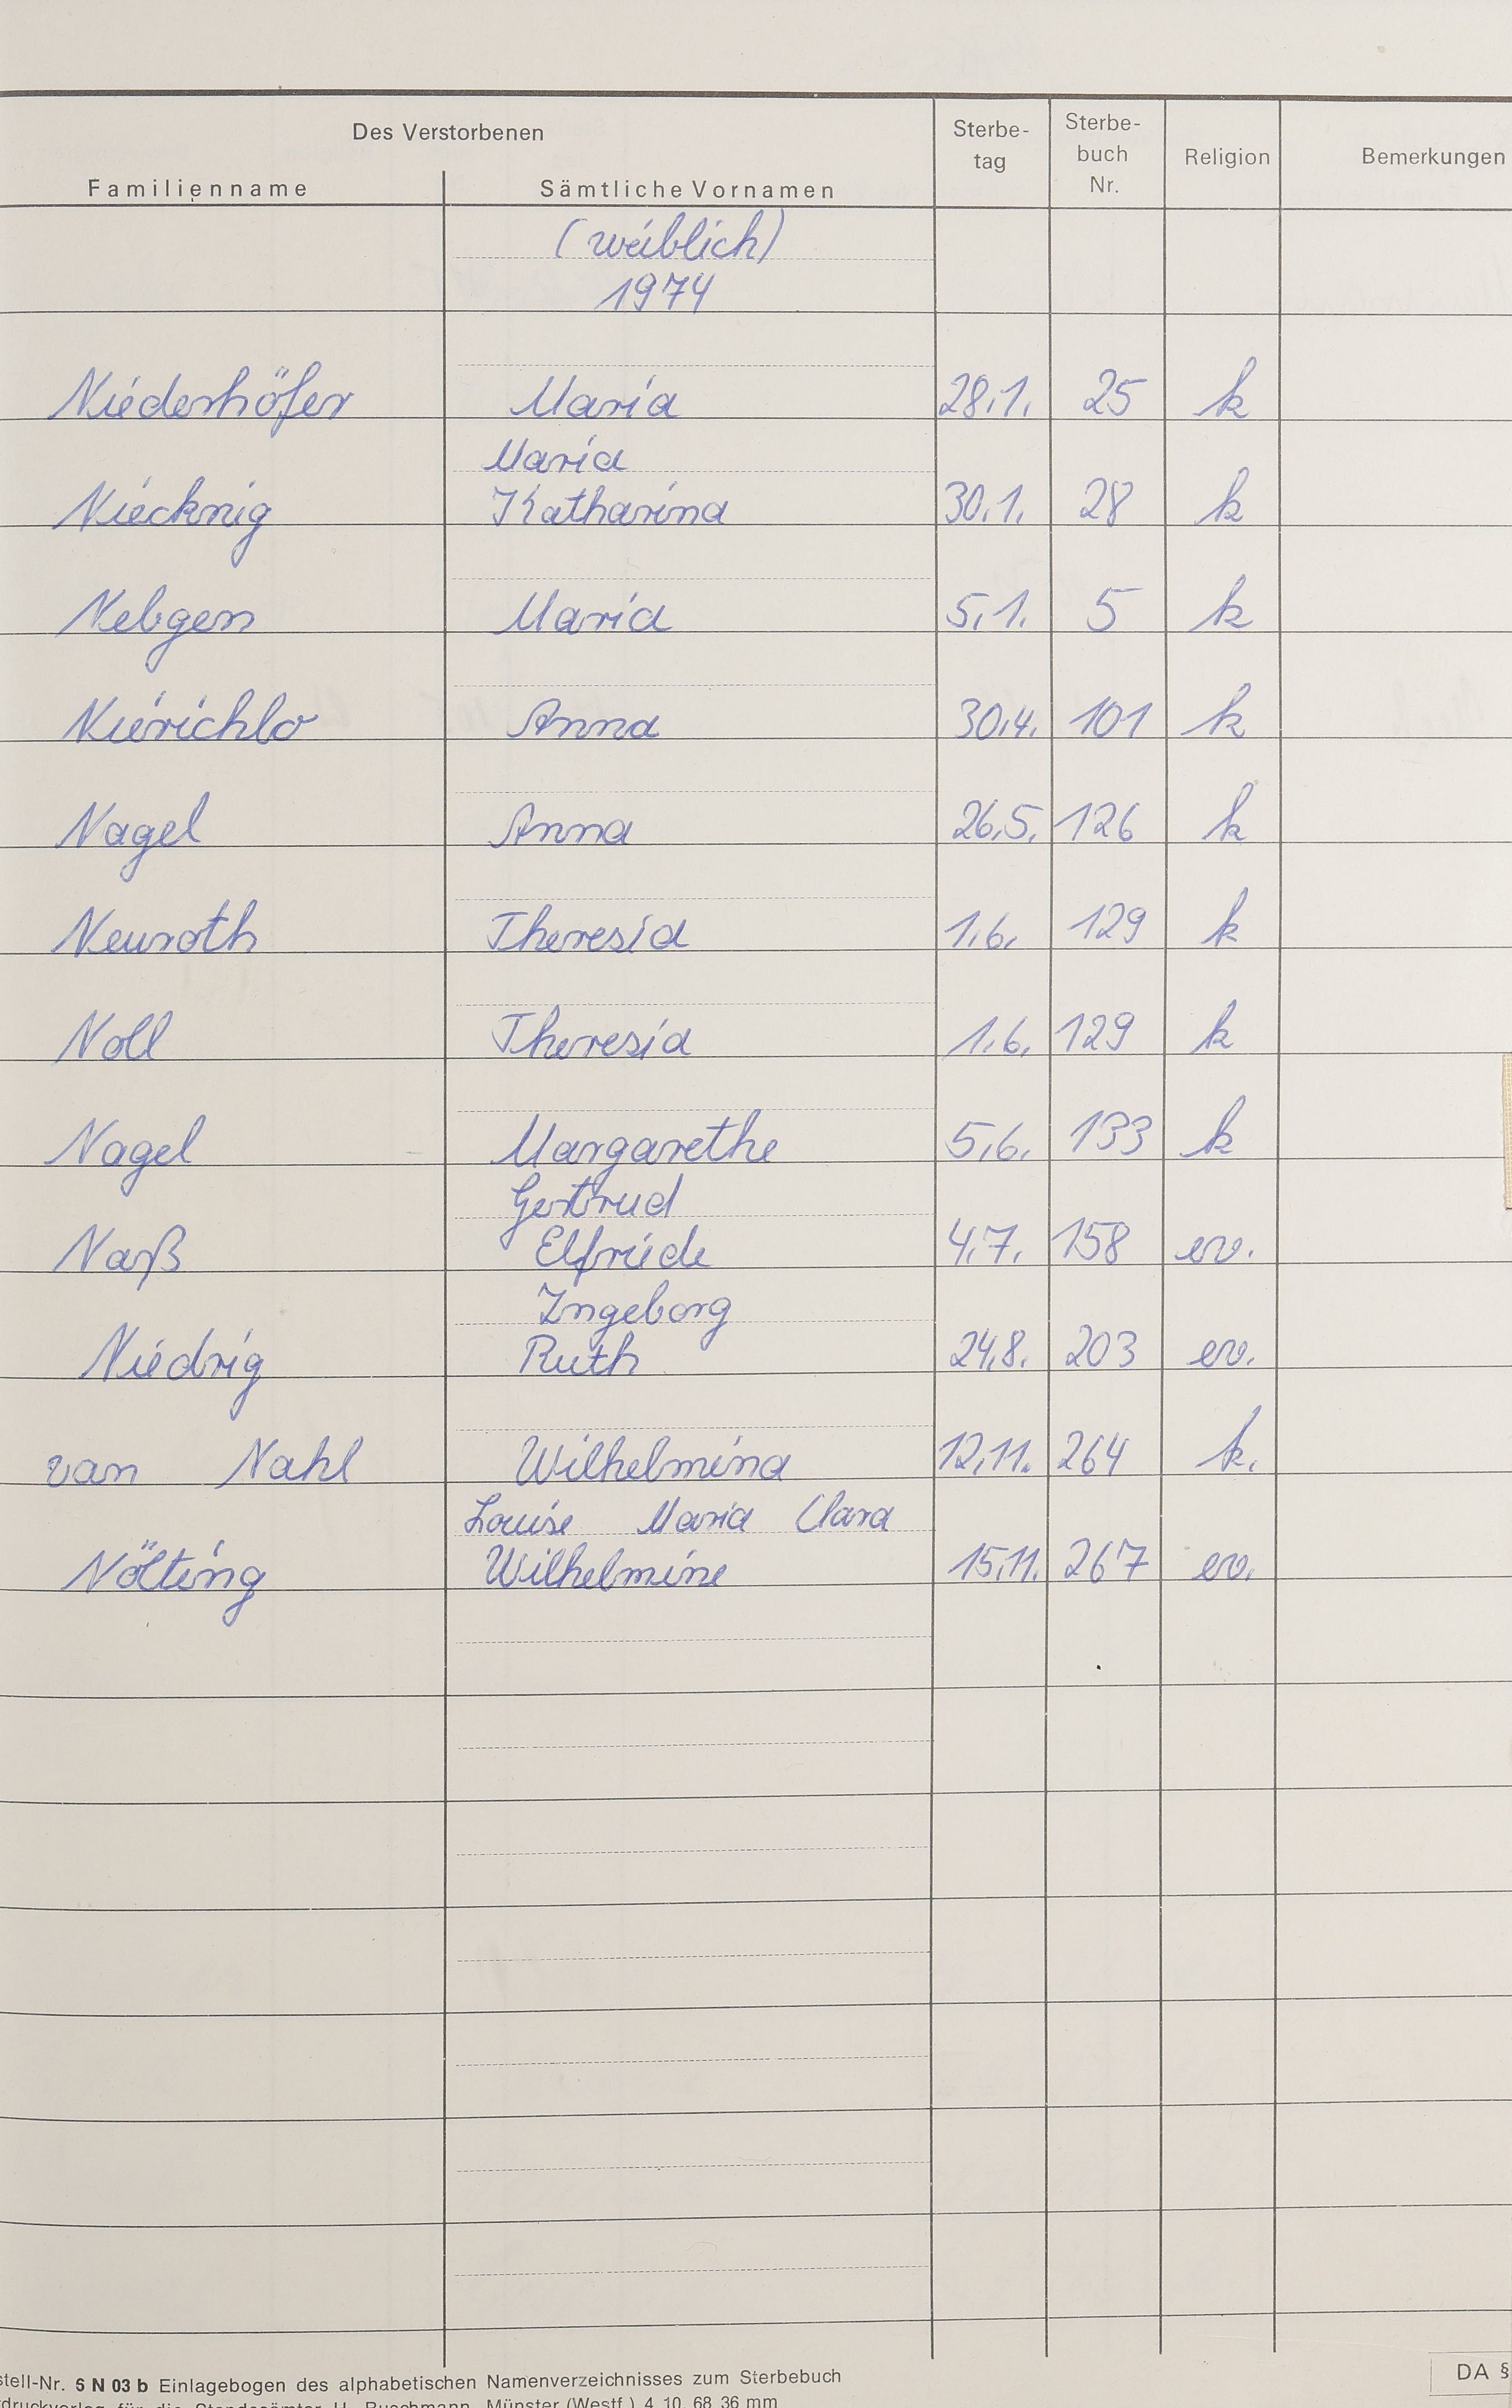 Des Verstorbenen
Familienname Sämtliche Vornamen Sterbe-tag Sterbe-buch Nr. Religion Bemerkungen
(weiblich)
1974
Niederhöfer Maria 28.1. 25 k
Maria
Niecknig Katharina 30.1. 28 k
Nebgen Maria 5.1. 5 k
Nierichlo Anna 30.4. 101 k
Nagel Anna 26.5. 126 k
Neuroth Theresia 1.6. 129 k
Noll Theresia 1.6. 129 k
Nagel Margarethe 5.6. 133 k
Gertrud
Naß Elfriede 4.7. 158 ev.
Ingeborg
Niedrig Ruth 24.8. 203 ev.
van Nahl Wilhelmina 12.11. 264 k.
Louise Maria Clara
Nölting Wilhelmine 15.11. 267 ev.
stell-Nr. 6 N 03 b Einlagebogen des alphabetischen Namenverzeichnisses zum Sterbebuch
DA §